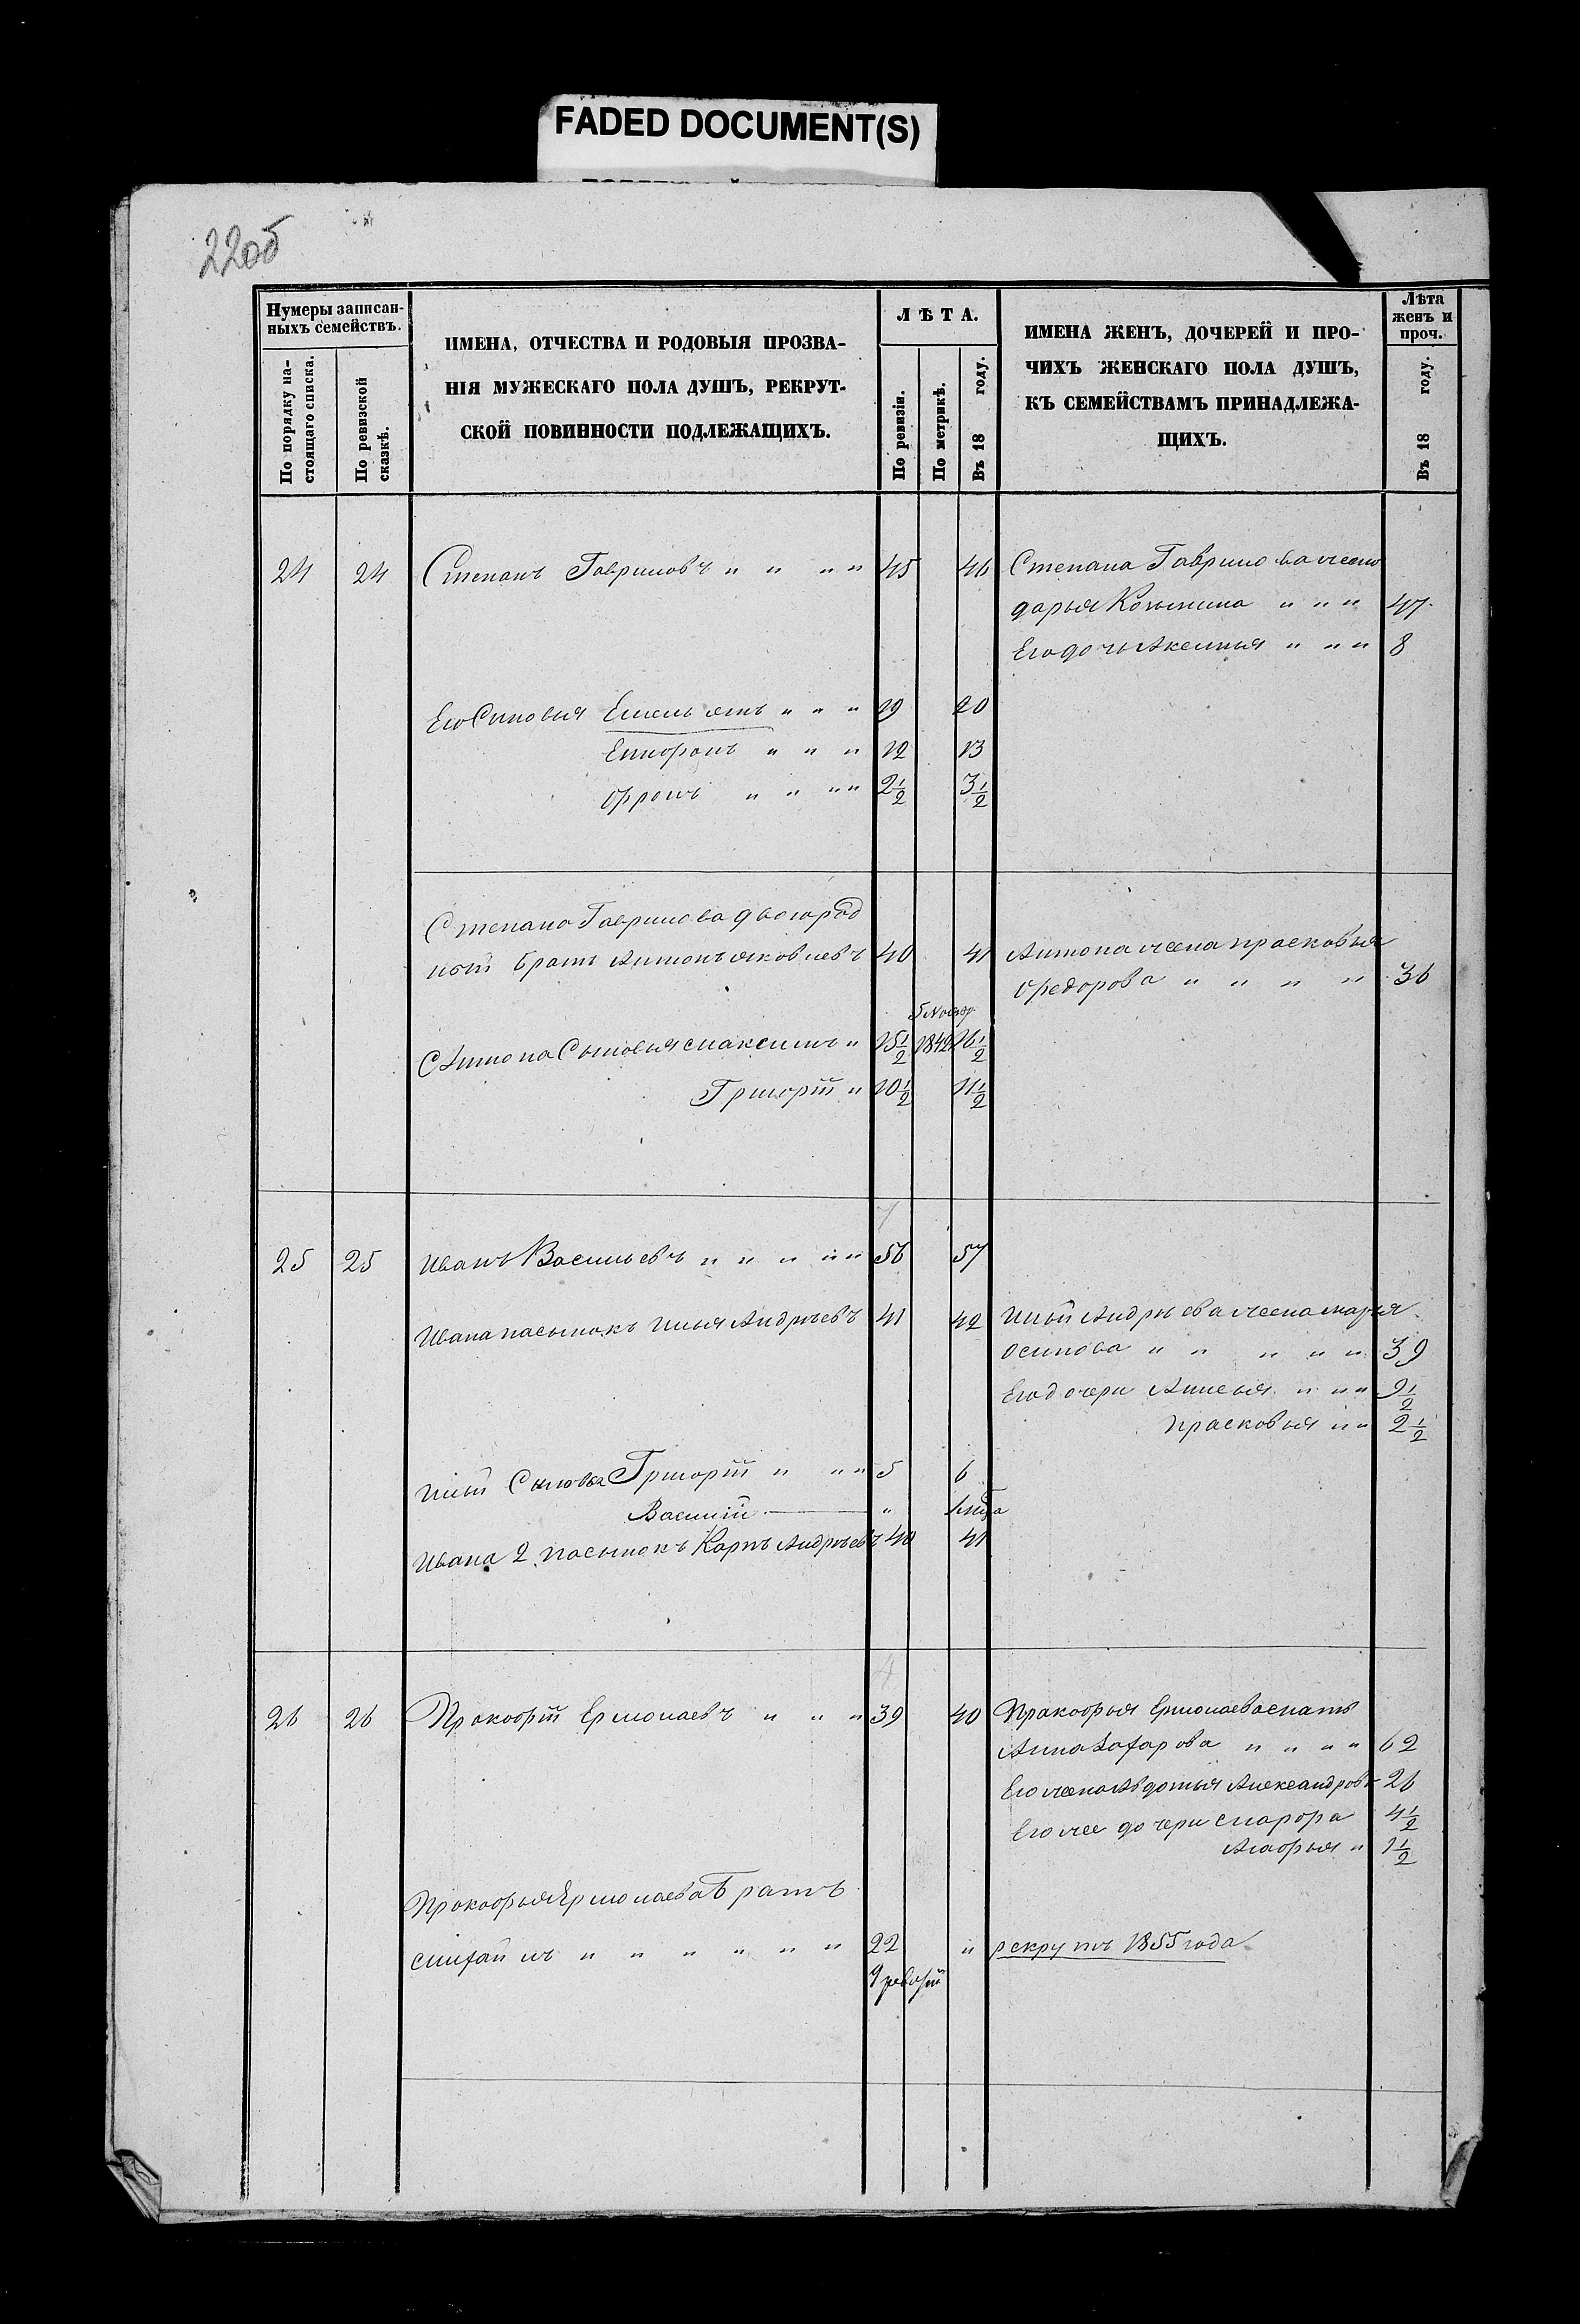 FADED DOCUMENT(S)
22об
Нумеры записан-
ныхъ семействъ.
По порядку на-
стоящаго списка.
По ревизской
сказкѣ.
ИМЕНА, ОТЧЕСТВА И РОДОВЫЯ ПРОЗВА-
НІЯ МУЖЕСКАГО ПОЛА ДУШЪ, РЕКРУТ-
СКОЙ ПОВИННОСТИ ПОДЛЕЖАЩИХЪ.
ЛѢТА.
По ревизіи.
По метрикѣ.
Въ 18 году.
ИМЕНА ЖЕНЪ, ДОЧЕРЕЙ И ПРО-
ЧИХЪ ЖЕНСКАГО ПОЛА ДУШЪ,
КЪ СЕМЕЙСТВАМЪ ПРИНАДЛЕЖА-
ЩИХЪ.
Лѣта
женъ и
проч.
Въ 18 году.
24 24 Степанъ Гавриловъ " " " " 45 46 Степана Гаврилова жена
дарья " " " 47
Его дочь Аксинья " " " 8
Его Сыновья Емельянъ " " " 19 20
" " " 12 13
Фролъ " " " " 2 1/2 3 1/2
Степана Гаврилова двоюрод
ной братъ Антонъ яковлевъ 40 41 Антона жена прасковья
Федорова " " " " 36
5 Ноябр.
Антона Сыновья максимъ " 15 1/2 1842 16 1/2
Григорій " 10 1/2 11 1/2
25 25 Иванъ Васильевъ " " " " " 56 57
Ивана пасынокъ илья Андрѣевъ 41 42 ильи Андрѣева жена марья
осипова " " " " " 39
Его дочери " " " 9 1/2
прасковья " " 2 1/2
ильи Сыновья Григорій " " " 5 6
Василій " 1 мѣ
Ивана 2 пасынокъ Карпъ Андрѣевъ 40 41
26 26 Прокофій Ермолаевъ " " " 39 40 Пракофья Ермолаева мать
Анна Захарова " " " " 62
Его жена Авдотья Александрова 26
Его же дочери 4 1/2
1 1/2
Прокофья Ермолаева Братъ
михаилъ " " " " " " 22 " рекрутъ 1855 года
9 ревизіи